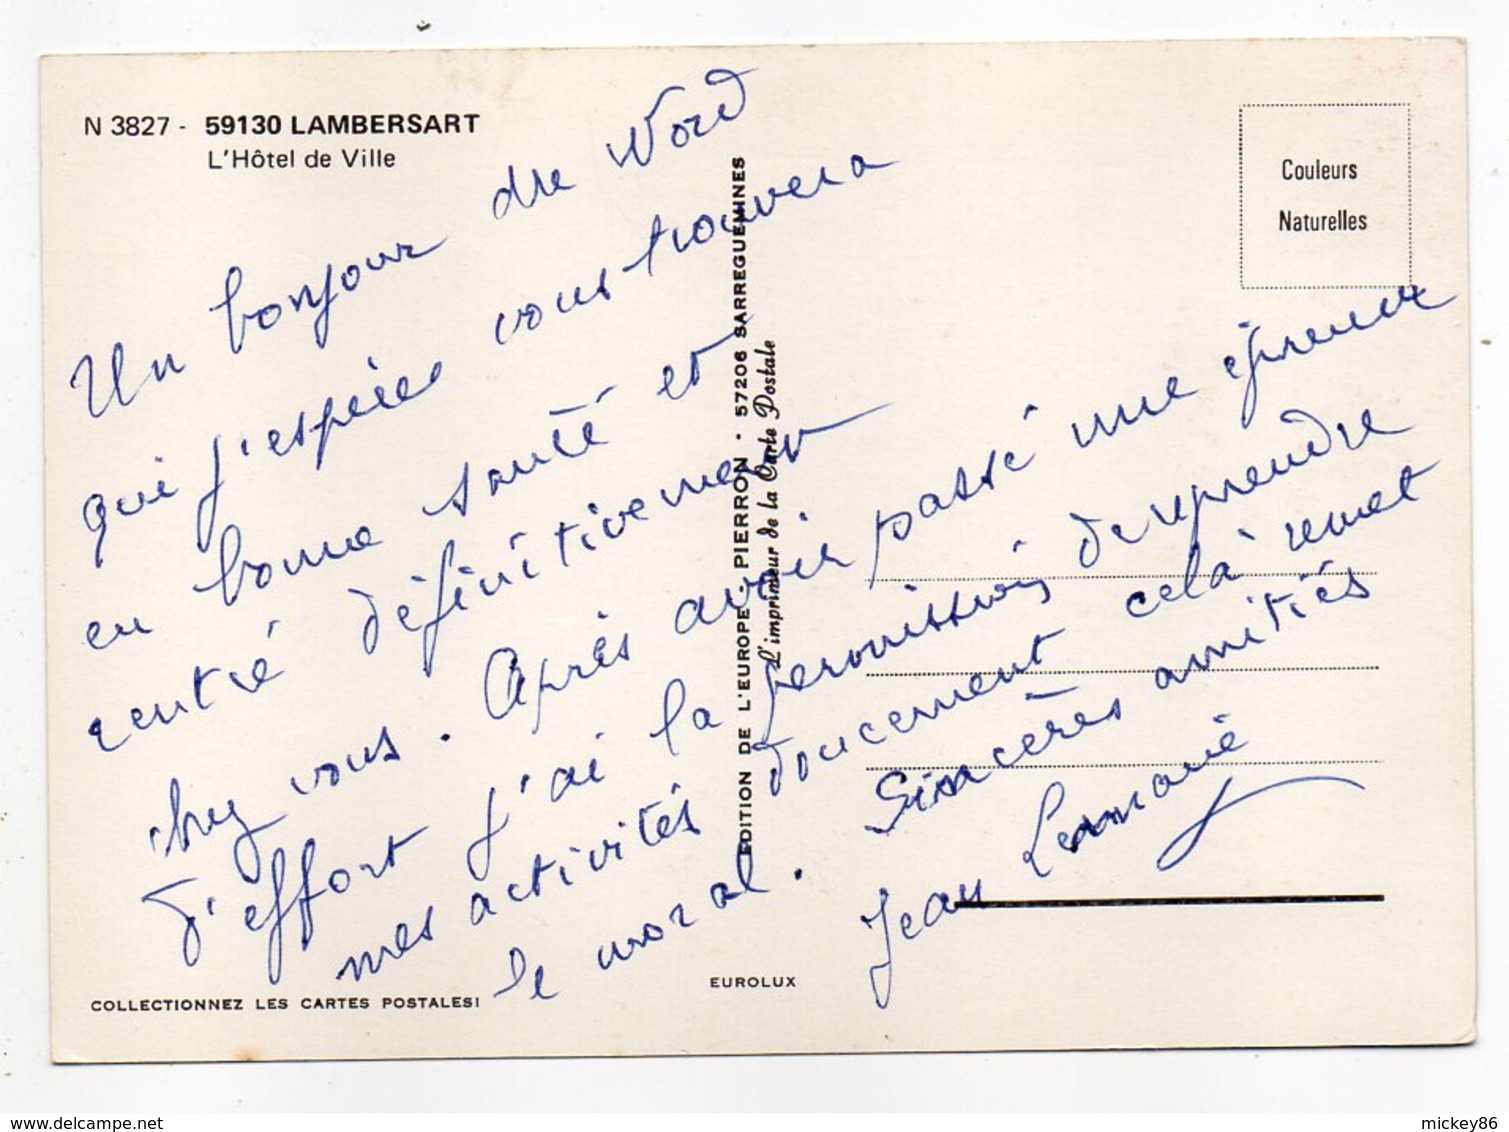 N 3827 - 59130 LAMBERSART
L'Hôtel de Ville
Couleurs
Naturelles
Un bonjour du Nord
qui j'espères vous trouvera
en bonne santé et
rentré définitivement
chez vous. Après avoir passé une épreuve
d'effort j'ai la permission de reprendre
mes activités doucement celà remet
le moral. Sincères amitiés
Jean
EDITION DE L'EUROPE - PIERRON - 57206 SARREGUEMINES
L'imprimeur de la Carte Postale
COLLECTIONNEZ LES CARTES POSTALES!
EUROLUX
www.delcampe.net
mickey86